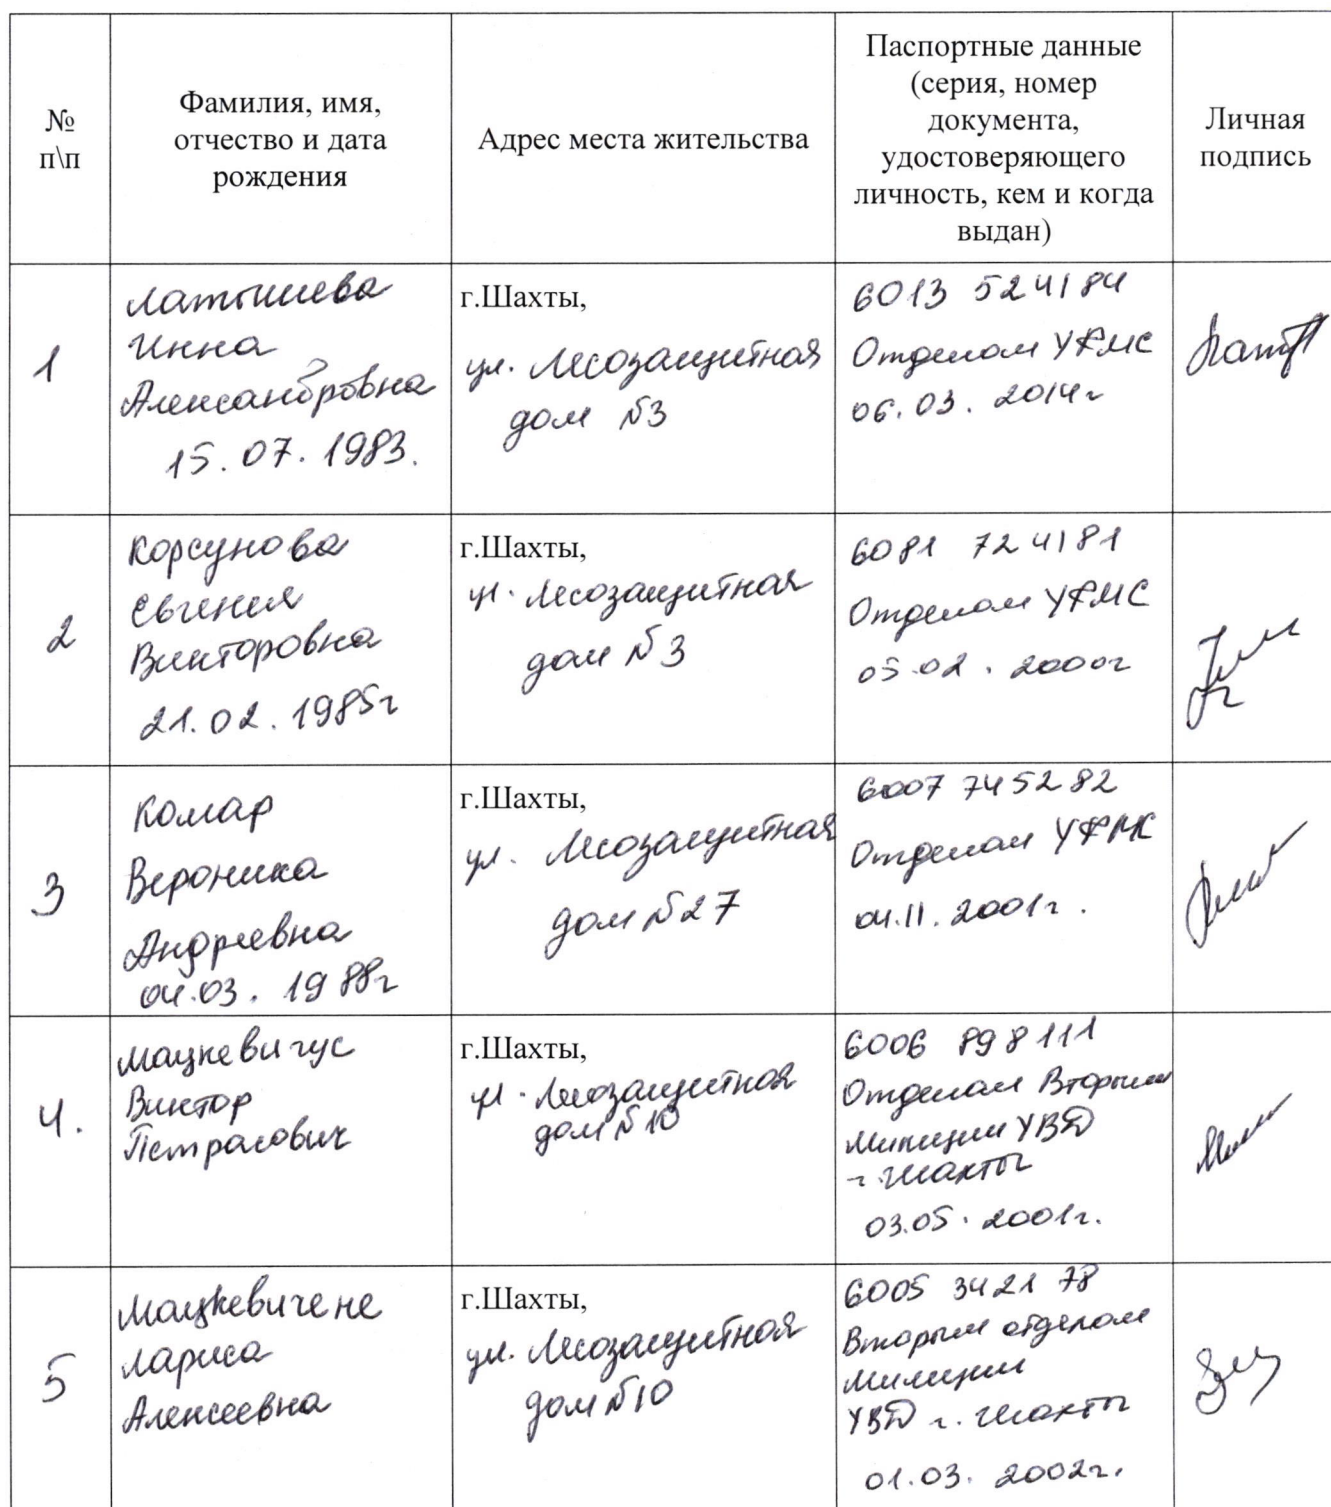 №
п\п
Фамилия, имя,
отчество и дата
рождения
Адрес места жительства
Паспортные данные
(серия, номер
документа,
удостоверяющего
личность, кем и когда
выдан)
Личная
подпись
1
Латышева
Инна
Александровна
15.07.1983.
г.Шахты,
ул. Лесозащитная
дом №3
6013 524184
Отделом УФМС
06.03.2014г
2
Корсунова
Евгения
Викторовна
21.02.1985г
г.Шахты,
ул. Лесозащитная
дом №3
6081 724181
Отделом УФМС
05.02.2000г
3
Комар
Вероника
Андреевна
04.03.1988г
г.Шахты,
ул. Лесозащитная
дом №27
6007 745282
Отделом УФМС
04.11.2001г.
4.
Мацкевичус
Виктор
Петрасович
г.Шахты,
ул. Лесозащитная
дом №10
6006 898111
Отделом Вторым
Милиции УВД
г. Шахты
03.05.2001г.
5
Мацкевичене
Лариса
Алексеевна
г.Шахты,
ул. Лесозащитная
дом №10
6005 3421 78
Вторым отделом
Милиции
УВД г. Шахты
01.03.2002г.